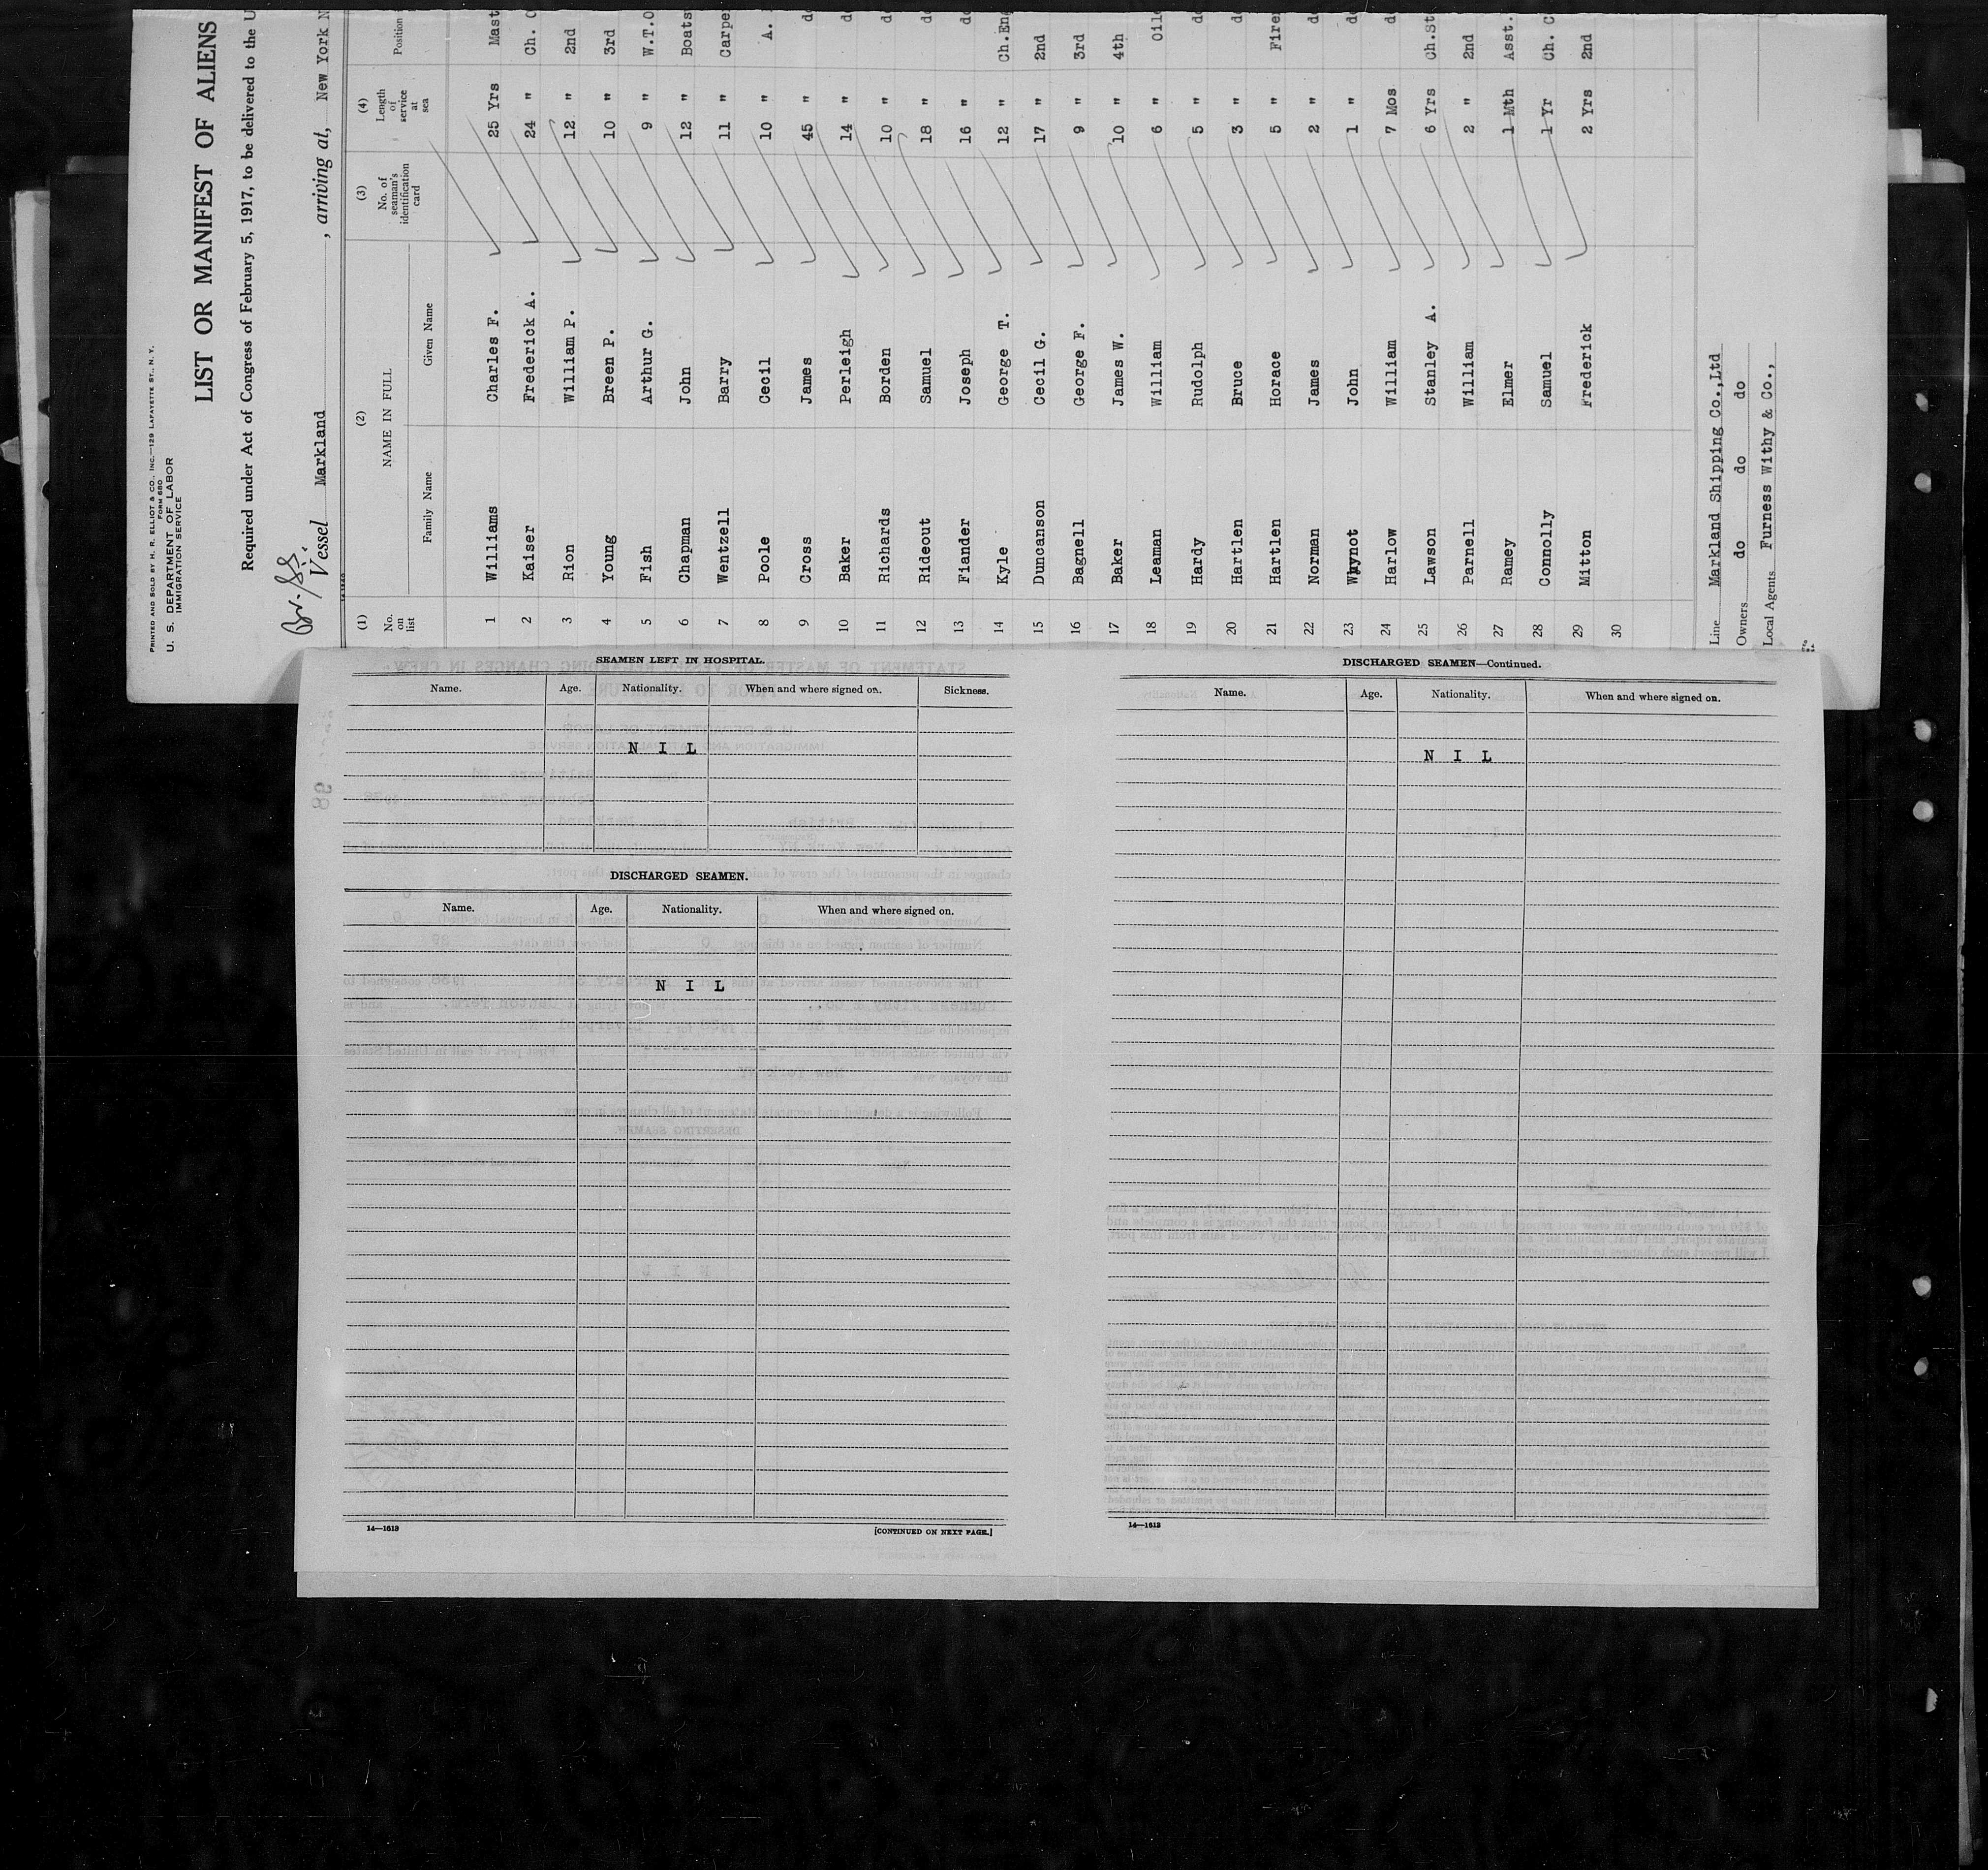 PRINTED AND SOLD BY H. R. ELLIOT & CO., INC.—129 LAFAYETTE ST., N. Y.
FORM 680
U. S. DEPARTMENT OF LABOR
IMMIGRATION SERVICE
LIST OR MANIFEST OF ALIENS
Required under Act of Congress of February 5, 1917, to be delivered to the U
Br. SS.
Vessel Markland , arriving at, New York N
(1) (2) (3) (4)
No. on list NAME IN FULL No. of seaman's identification card Length of service at sea Position
Family Name Given Name
1 Williams Charles F. 25 Yrs Mast
2 Kaiser Frederick A. 24 " Ch. O
3 Rion William P. 12 " 2nd
4 Young Breen P. 10 " 3rd
5 Fish Arthur G. 9 " W.T.O
6 Chapman John 12 " Boats
7 Wentzell Barry 11 " Carpe
8 Poole Cecil 10 " A.
9 Cross James 45 " do
10 Baker Perleigh 14 " d
11 Richards Borden 10 " d
12 Rideout Samuel 18 " do
13 Fiander Joseph 16 " do
14 Kyle George T. 12 " Ch.Eng
15 Duncanson Cecil G. 17 " 2nd
16 Bagnell George F. 9 " 3rd
17 Baker James W. 10 " 4th
18 Leaman William 6 " Oile
19 Hardy Rudolph 5 " d
20 Hartlen Bruce 3 " d
21 Hartlen Horace 5 " Firem
22 Norman James 2 " d
23 Whynot John 1 " d
24 Harlow William 7 Mos d
25 Lawson Stanley A. 6 Yrs Ch.St
26 Parnell William 2 " 2nd
27 Ramey Elmer 1 Mth Asst.
28 Connolly Samuel 1 Yr Ch. C
29 Mitton Frederick 2 Yrs 2nd
30
Line Markland Shipping Co.,Ltd
Owners do do do
Local Agents Furness Withy & Co.,
SEAMEN LEFT IN HOSPITAL.
Name. Age. Nationality. When and where signed on. Sickness.
N I L
DISCHARGED SEAMEN.
Name. Age. Nationality. When and where signed on.
N I L
14—1613 [CONTINUED ON NEXT PAGE.]
DISCHARGED SEAMEN—Continued.
Name. Age. Nationality. When and where signed on.
N I L
14—1613